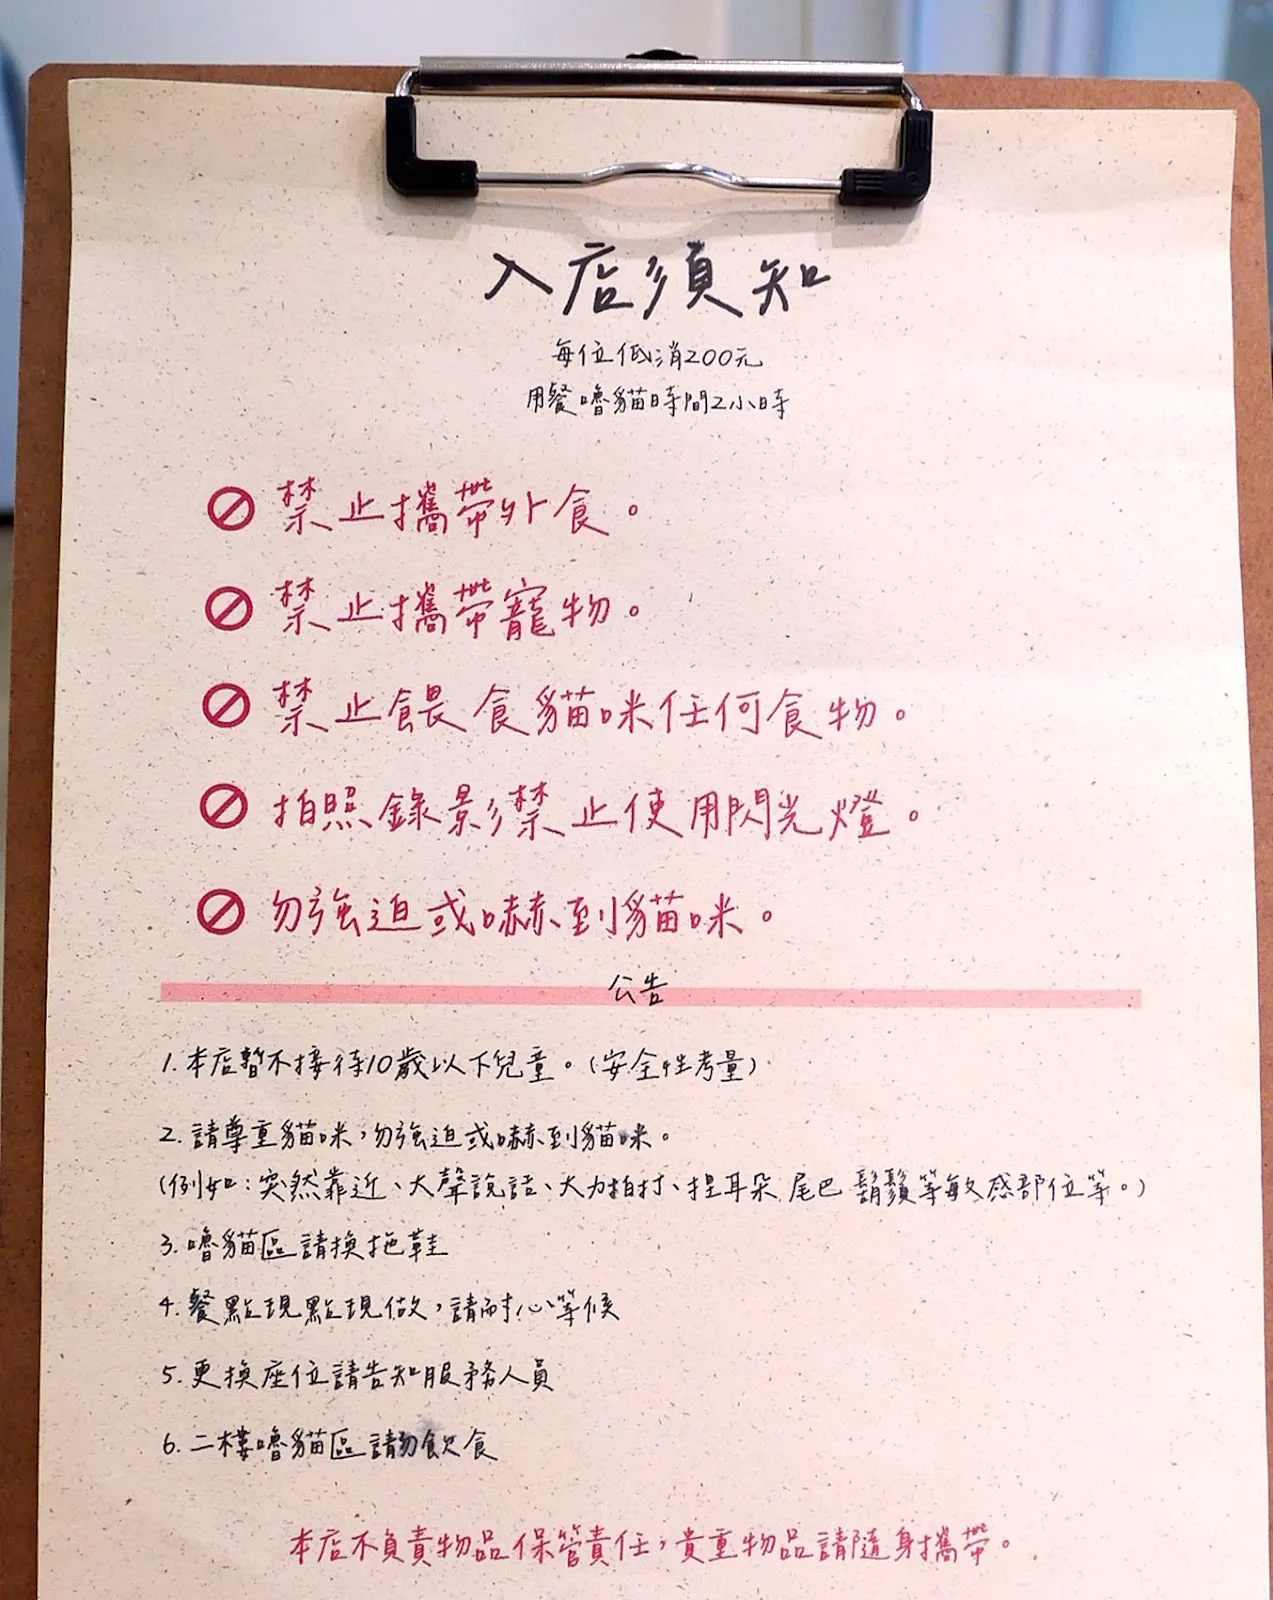 入店須知
每位低消200元
用餐嚕貓時間2小時
禁止攜帶外食。
禁止攜帶寵物。
禁止餵食貓咪任何食物。
拍照錄影禁止使用閃光燈。
勿強迫或嚇到貓咪。
公告
1.本店暫不接待10歲以下兒童。(安全性考量)
2.請尊重貓咪,勿強迫或嚇到貓咪。
(例如:突然靠近、大聲說話、大力拍打、捏耳朵.尾巴 鬍鬚等敏感部位等。)
3.嚕貓區請換拖鞋
4.餐點現點現做,請耐心等候
5.更換座位請告知服務人員
6.二樓嚕貓區請勿飲食
本店不負責物品保管責任,貴重物品請隨身攜帶。